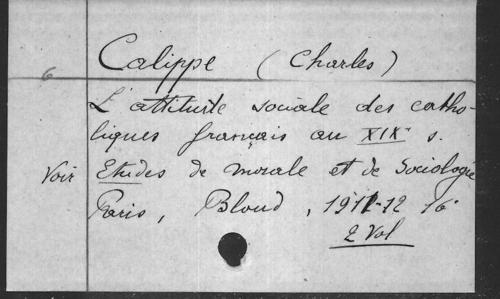 Calippe (Charles)
6
L'attitude sociale des catho-
liques français au XIXe s.
Voir Etudes de morale et de Sociologie
Paris, Bloud, 1911-12 16°
2 Vol